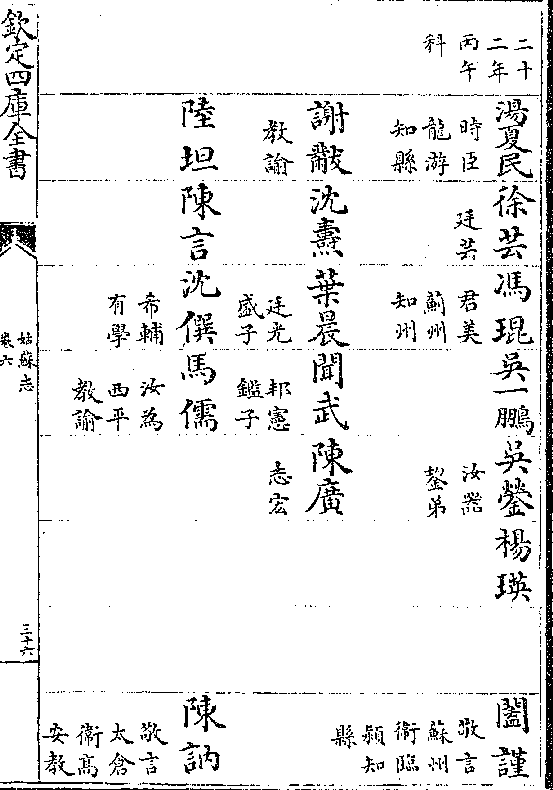 欽定四庫全書
姑蘇志
卷六
三十六
二十
二年
丙午
科
湯夏民
時臣
龍游
知縣
謝黻
教諭
陸坦
徐芸
廷芸
沈燾
陳言
馮琨
君美
薊州
知州
葉晨
廷光
盛子
沈僎
希輔
有學
吳一鵬
聞武
邦憲
鑑子
馬儒
汝為
西平
教諭
吳鎣
汝器
弟
陳廣
志宏
楊瑛
闔謹
敬言
蘇州
衛臨
潁知
縣
陳訥
敬言
太倉
衛髙
安教